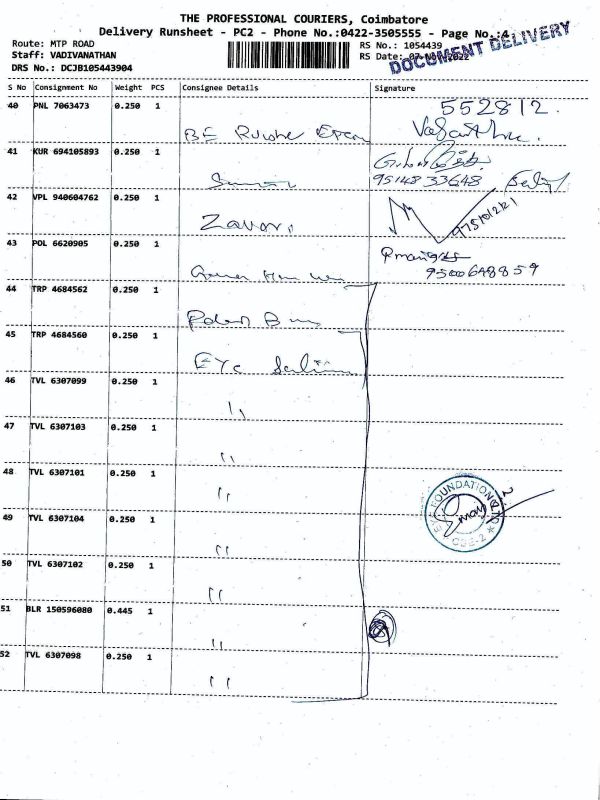 THE PROFESSIONAL COURIERS, Coimbatore
Delivery Runsheet - PC2 - Phone No.:0422-3505555 - Page No.:4
DOCUMENT DELIVERY
Route: MTP ROAD
RS No.: 1054439
Staff: VADIVANATHAN
RS Date:
DRS No.: DCJB105443904
S No Consignment No Weight PCS Consignee Details Signature
552812
40 PNL 7063473 0.250 1
41 KUR 694105893 0.250 1
95148 33648
42 VPL 940604762 0.250 1
Zavari
43 POL 6620905 0.250 1
9500648859
44 TRP 4684562 0.250 1
45 TRP 4684560 0.250 1
EYe
46 TVL 6307099 0.250 1
"
47 TVL 6307103 0.250 1
"
48 TVL 6307101 0.250 1
"
EYE FOUNDATION
CBE-2
49 TVL 6307104 0.250 1
"
50 TVL 6307102 0.250 1
"
51 BLR 150596080 0.445 1
"
52 TVL 6307098 0.250 1
"